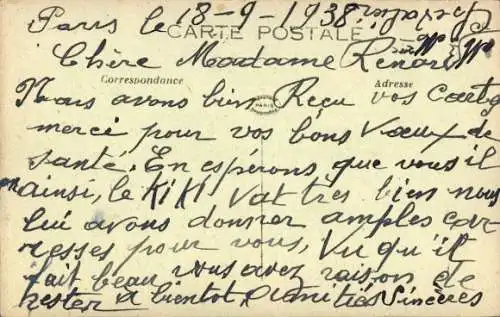 Paris le 18-9-1938
CARTE POSTALE
Chère Madame Renard
Correspondance
Adresse
Nous avons bien Reçu vos carte
PARIS
merci pour vos bons Vœux de
santé. En espérons que vous il
ainsi, le KiKi vat très bien nous
lui avons donner amples car
resses pour vous, Vu qu'il
fait beau vous avez raison de
rester à bientôt, Amitiés Sincères